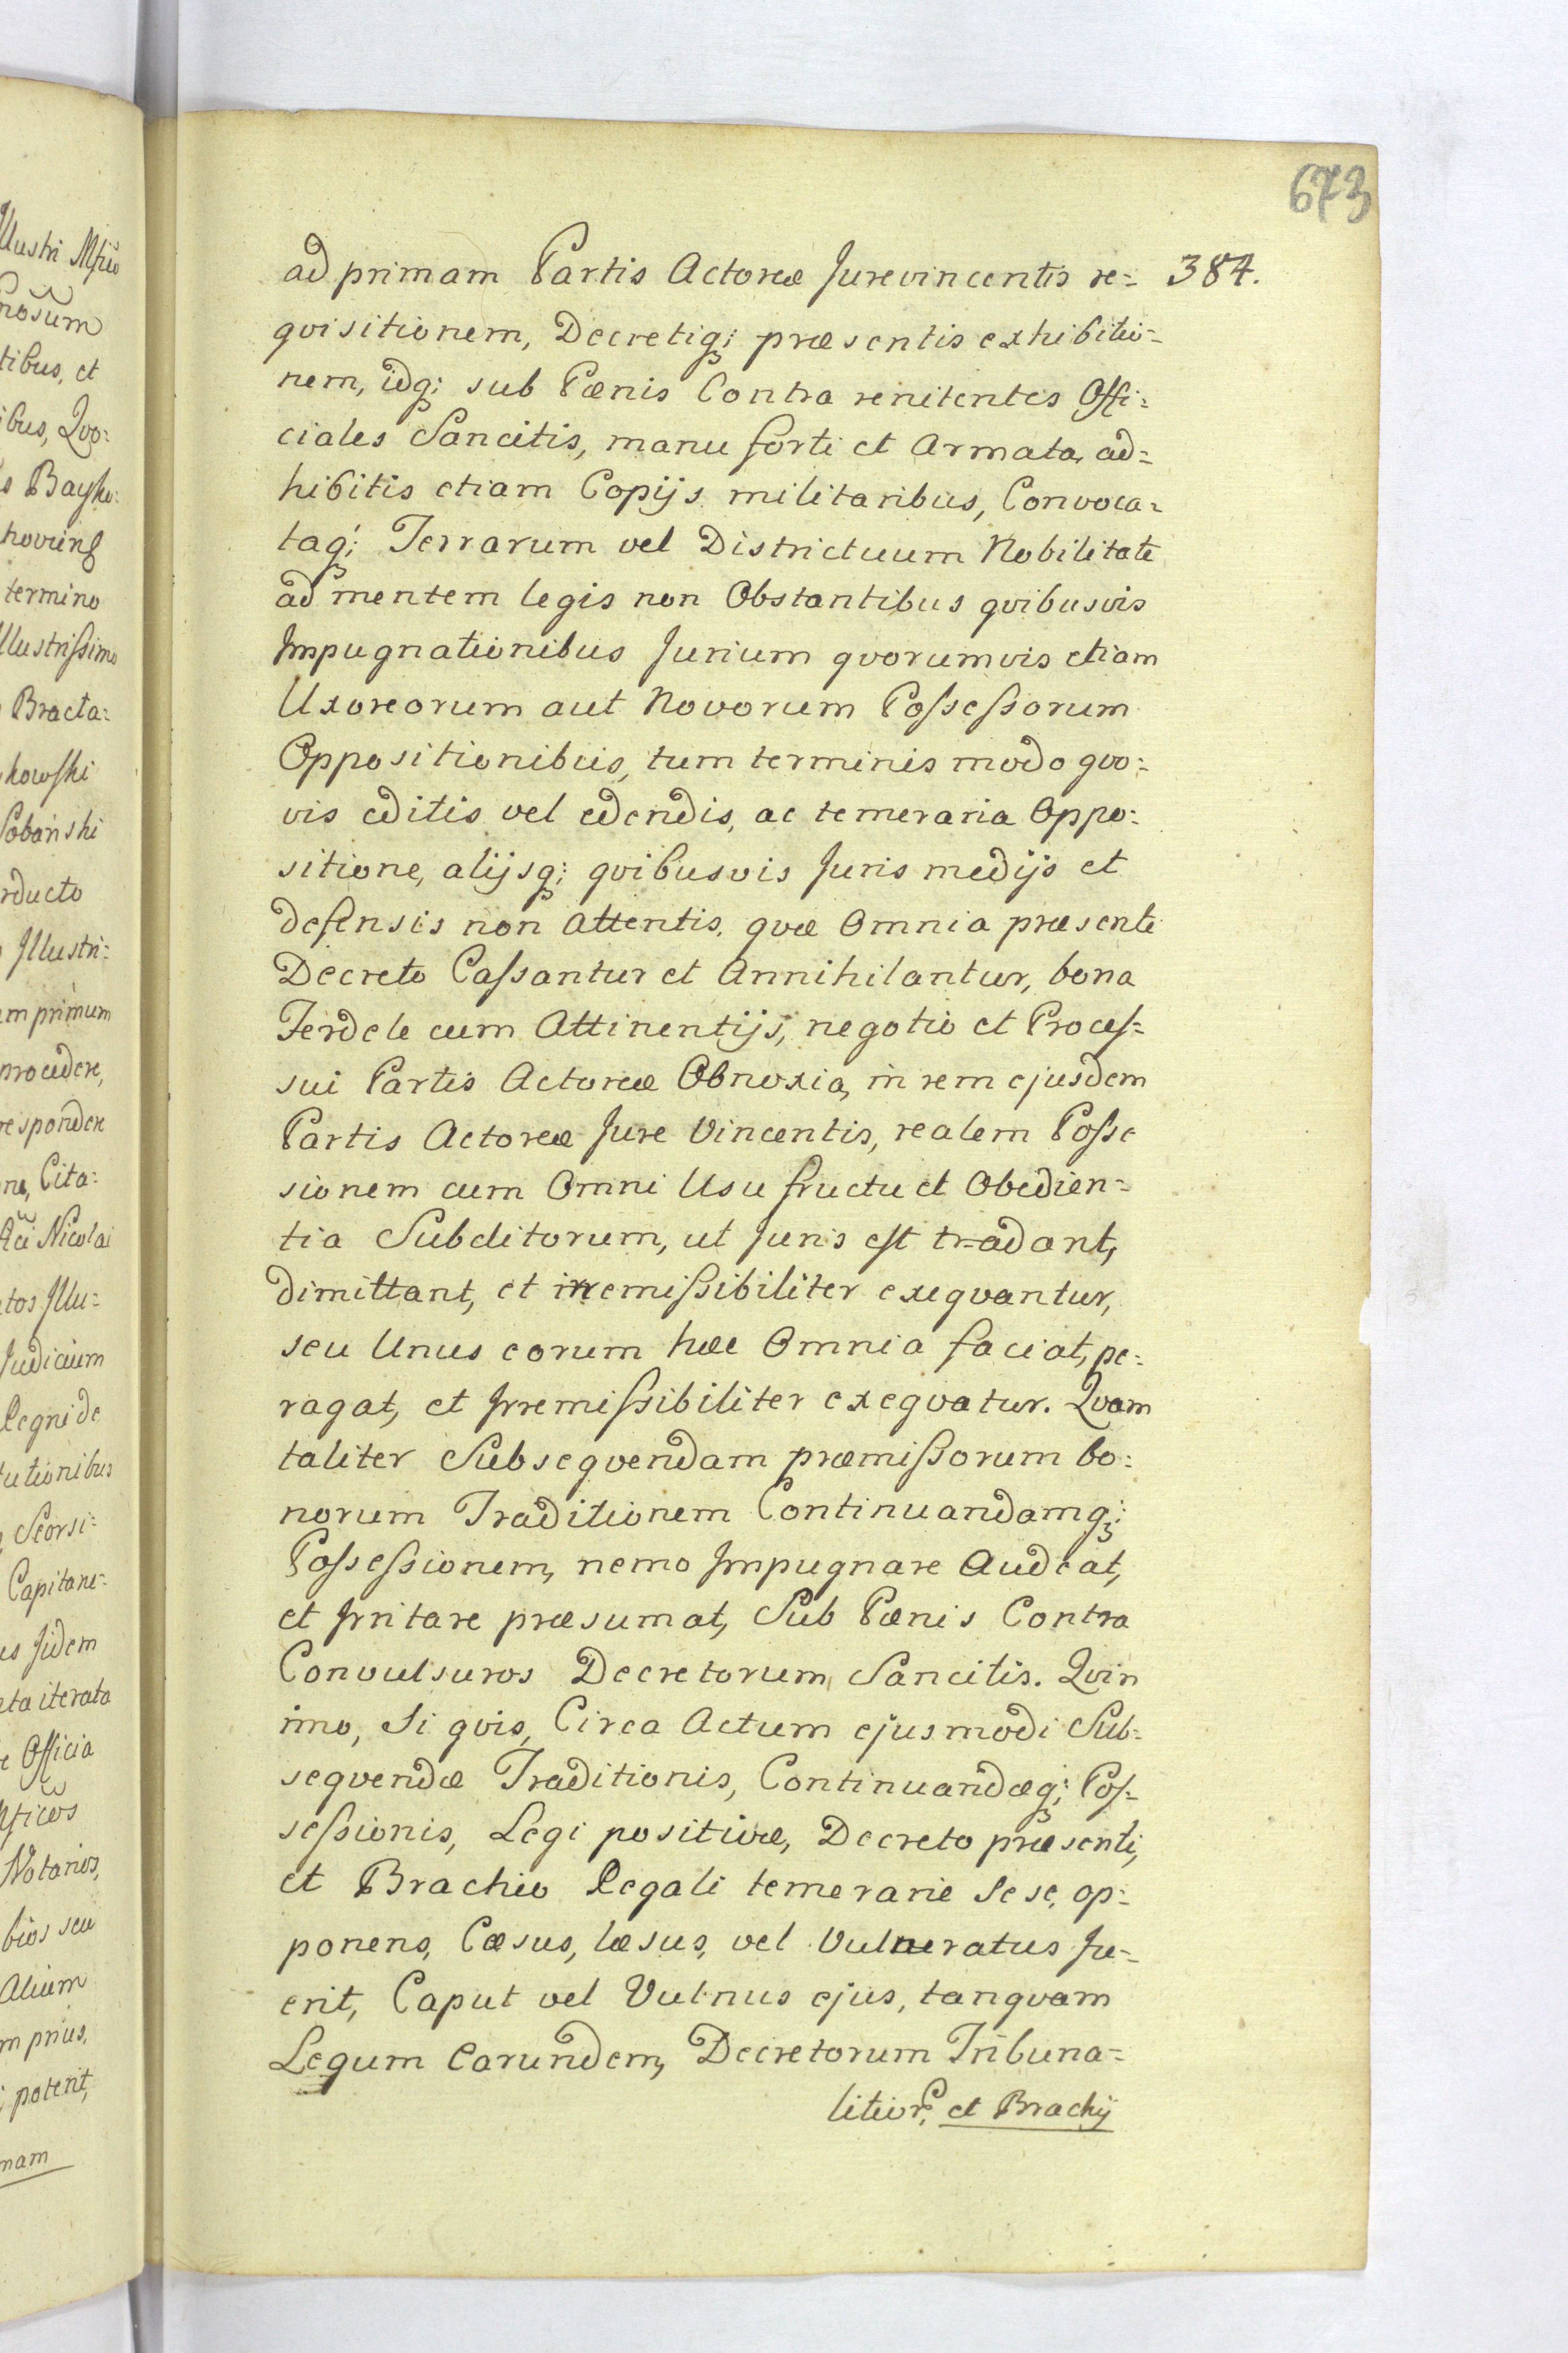 673
384.
ad primam Partis Actoreæ Jurevincentis re=
qvisitionem, Decretiq; præsentis exhibitio=
nem, idq; sub Pænis Contra renitentes Offi=
ciales Sancitis, manu forti et Armata, ad=
hibitis etiam Copijs militaribus, Convoca=
taq; Terrarum vel Districtuum Nobilitate
ad mentem legis non Obstantibus qvibusvis
Impugnationibus Jurium qvorumvis etiam
Uxoreorum aut Novorum Poſseſsorum
Oppositionibus, tum terminis modo qvo=
vis editis vel edendis, ac temeraria Oppo=
sitione, alijsq; qvibusvis Juris medijs et
defensis non Attentis. qvæ Omnia præsenti
Decreto Caſsantur et Annihilantur, bona
Ferdele cum Attinentijs, negotio et Proceſ=
sui Partis Actoreæ Obnoxia, in rem ejusdem
Partis Actoreæ Jure Vincentis, realem Poſse
sionem cum Omni Usu fructu et Obedien=
tia Subditorum, ut Juris est tradant,
dimittant, et irremiſsibiliter exeqvantur,
seu Unus eorum hæc Omnia faciat, pe=
ragat, et Irremiſsibiliter exeqvatur. Qvam
taliter Subseqvendam præmiſsorum bo=
norum Traditionem Continuandamq;
Poſseſsionem, nemo Impugnare Audeat,
et Irritare præsumat, Sub Pænis Contra
Convulsuros Decretorum Sancitis. Qvin
imo, Si qvis, Circa Actum ejusmodi Sub=
seqvendæ Traditionis, Continuandæq; Poſ=
seſsionis, Legi positivæ, Decreto præsenti,
et Brachio Regali temerarie Sese, op=
ponens, Cæsus, læsus, vel Vulneratus fu=
erit, Caput vel Vulnus ejus, tanqvam
Legum Earundem, Decretorum Tribuna=
litior. et Brachij
termino
Bracta=
howſki
Sobański
rducto
Illustri=
primum
Cita=
Nicolai
Judicium
Seorsi=
Capitane=
iterata
Officia
Notarios,
seu
Alium
prius,
poterit,